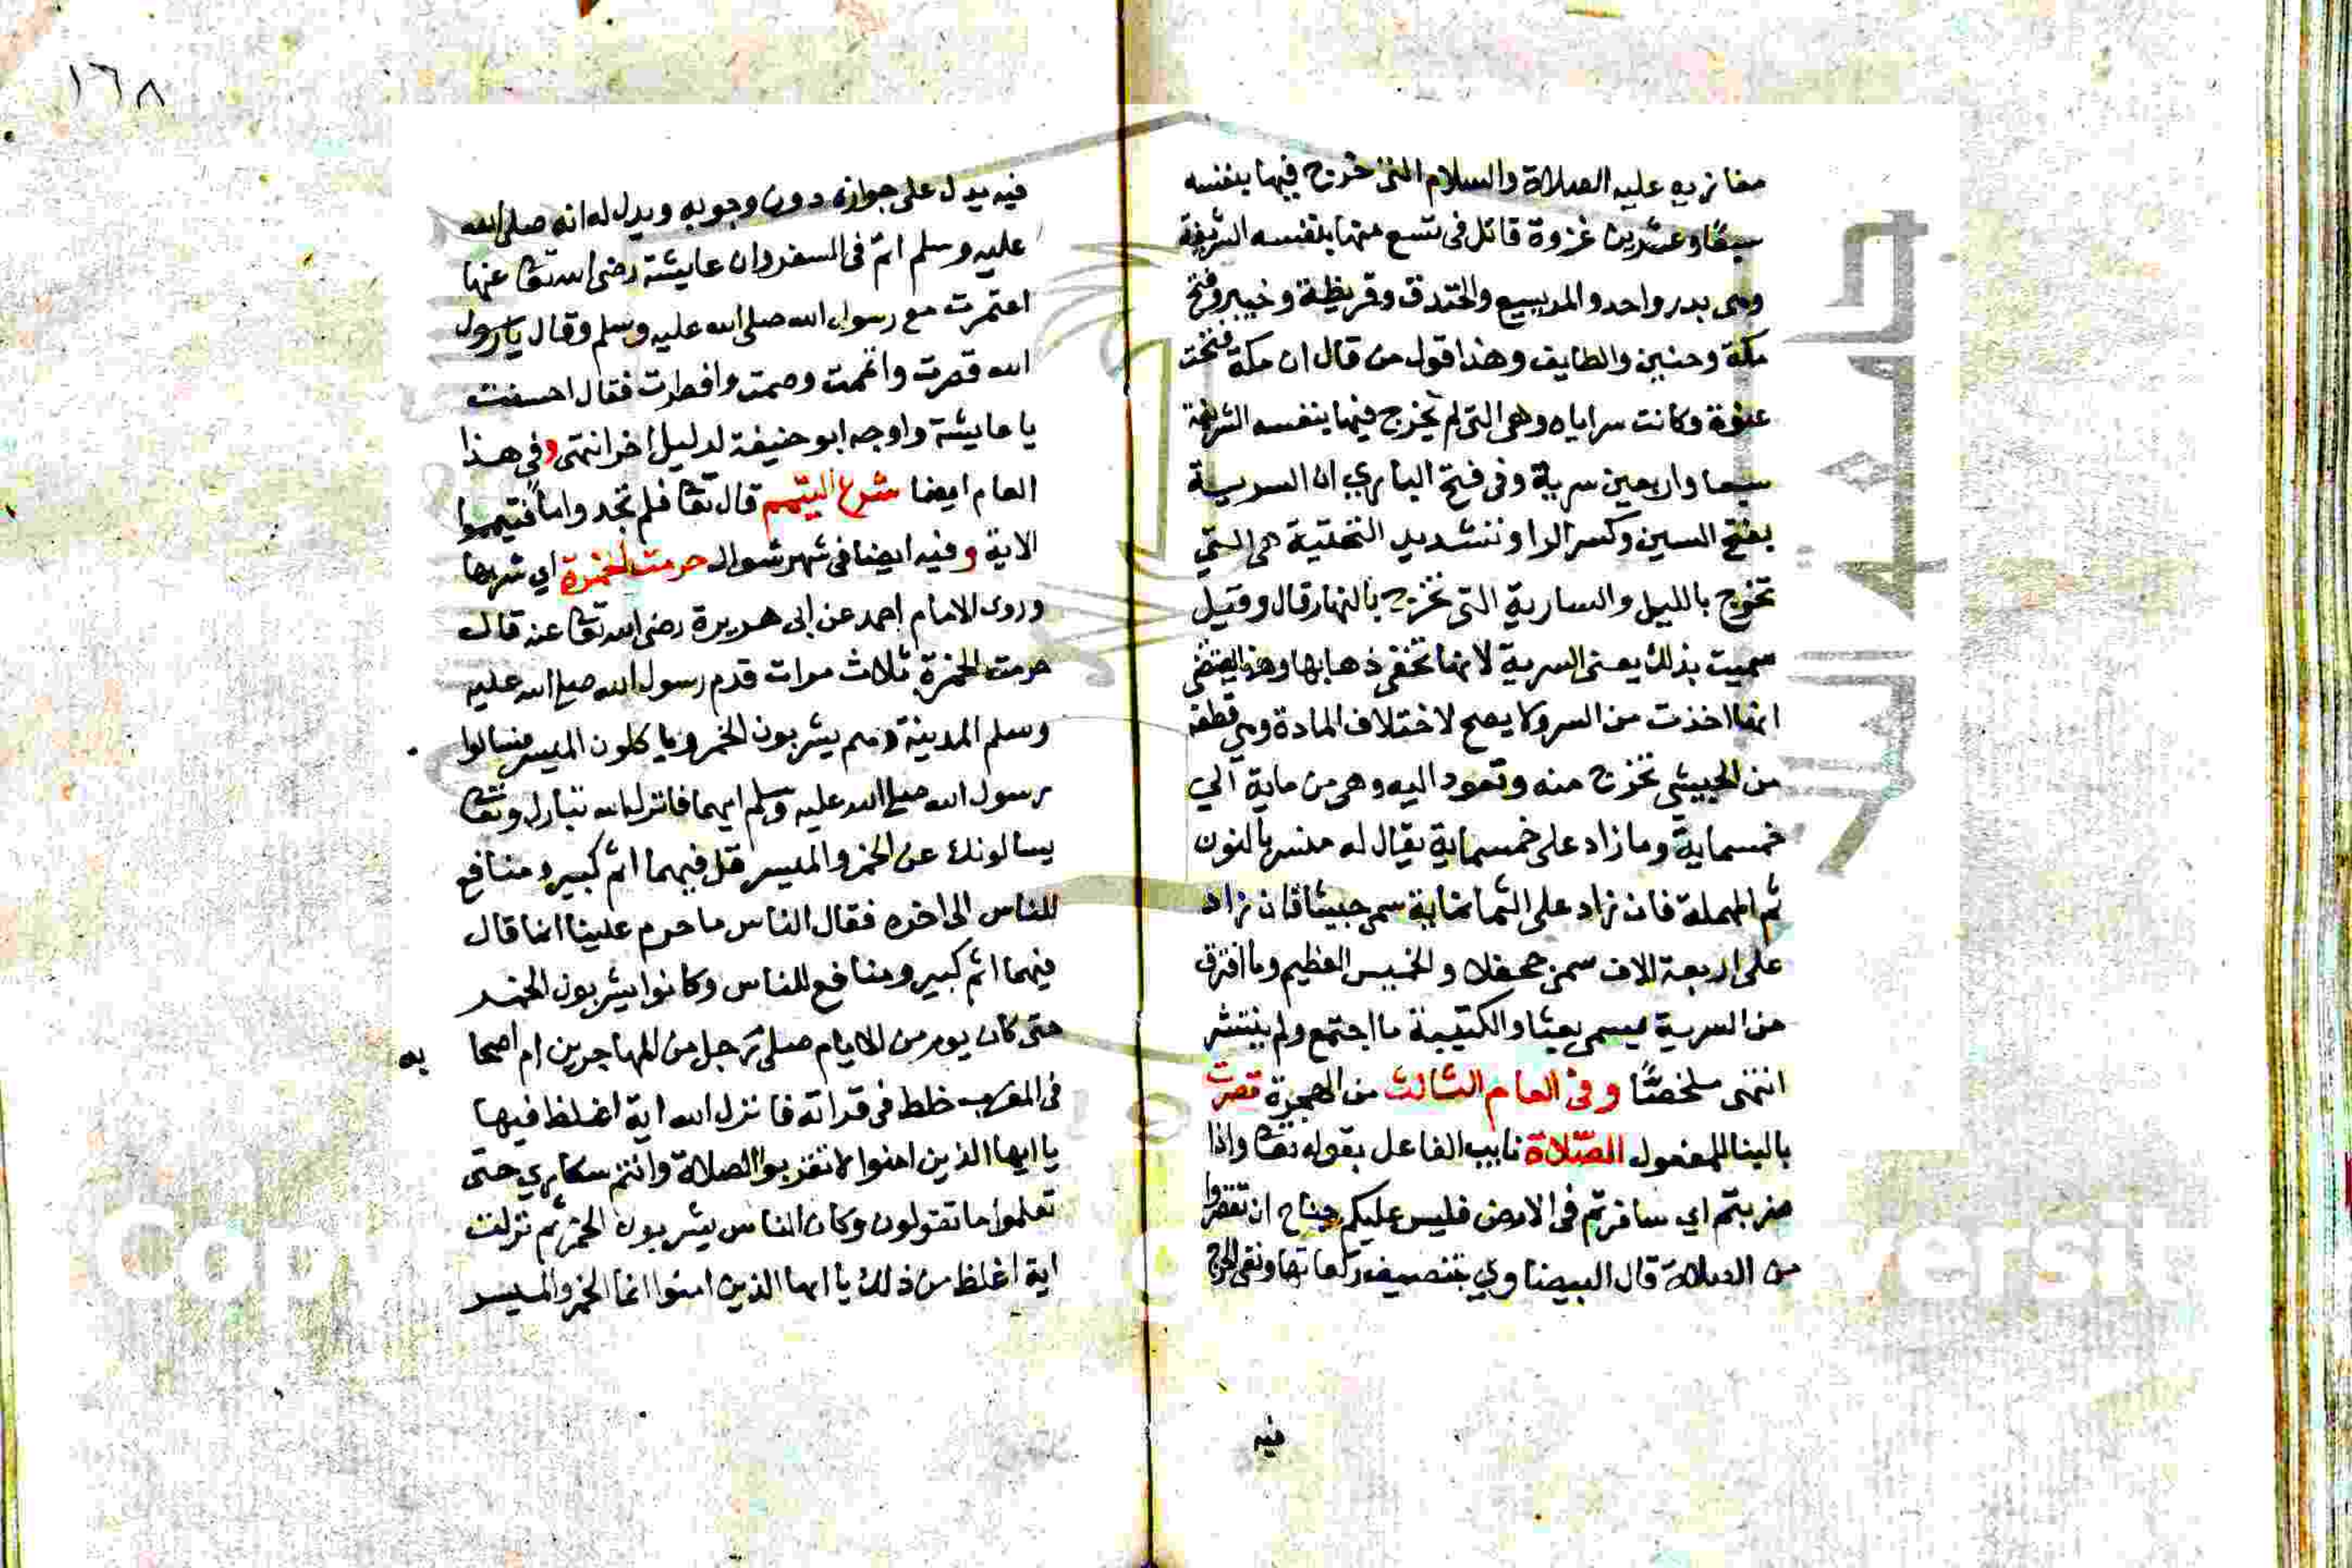 مغازيه عليه الصلاة والسلام التي خرج فيها بنفسه
سبعًا وعشرين غزوة قاتل في تسع منها بنفسه الشريفة
وهي بدر واحد والمريسيع والخندق وقريظة وخيبر وفتح
مكة وحنين والطايف وهذا قول من قال ان مكة فتحت
عنوة وكانت سراياه وهي التي لم يخرج فيها بنفسه الشريفة
سبعا واربعين سرية وفي فتح الباري ان السرية
بفتح السين وكسر الرا وتشديد التحتية هي التي
تخرج بالليل والسارية التي تخرج بالنهار قال وقيل
سميت بذلك يعني السرية لانها تخفي ذهابها وهذا يقتضي
انها اخذت من السر ولا يصح لاختلاف المادة وهي قطعة
من الجيش تخرج منه وتعود اليه وهي من ماية الي
خمسماية وما زاد على خمسماية يقال له منسر بالنون
ثم المهملة فان زاد على الثمانماية سمي جيشا فان زاد
على اربعة الاف سمي جحفلا والخميس العظيم وما افترق
من السرية يسمى بعثا والكتيبة ما اجتمع ولم ينتشر
انتهى ملخصًا وفي العام الثالث من الهجرة قصرت
بالبنا للمفعول الصلاة نايب الفاعل بقوله تعا واذا
ضربتم اي سافرتم في الارض فليس عليكم جناح ان تقصروا
من الصلاة قال البيضاوي بتنصيف ركعاتها ونفي الحرج
فيه
١٦٨
فيه يدل على جوازه دون وجوبه ويدل له انه صلى الله
عليه وسلم اتم في السفر وان عايشة رضي الله تعا عنها
اعتمرت مع رسول الله صلى الله عليه وسلم وقال يا رسول
الله قصرت واتممت وصمت وافطرت فقال احسنت
يا عايشة واوجه ابو حنيفة لدليل اخر انتهى وفي هذا
العام ايضا شرع التيمم قال تعا فلم تجدوا ماً فتيمموا
الاية وفيه ايضا في شهر شوال حرمت الخمرة اي شربها
وروى الامام احمد عن ابي هريرة رضي الله تعا عنه قال
حرمت الخمرة ثلاث مرات قدم رسول الله صلى الله عليه
وسلم المدينة وهم يشربون الخمر وياكلون الميسر فسالوا
رسول الله صلى الله عليه وسلم ايهما فانزل الله تبارك وتعا
يسالونك عن الخمر والميسر قل فيهما اثم كبير ومنافع
للناس الى اخره فقال الناس ما حرم علينا انما قال
فيهما اثم كبير ومنافع للناس وكانوا يشربون الخمر
حتى كان يوم من الايام صلى رجل من المهاجرين ام اصحا به
في المغرب خلط في قراته فانزل الله اية اغلظ فيها
يا ايها الذين امنوا لا تقربوا الصلاة وانتم سكارى حتى
تعلموا ما تقولون وكان الناس يشربون الخمر ثم نزلت
اية اغلظ من ذلك يا ايها الذين امنوا انما الخمر والميسر